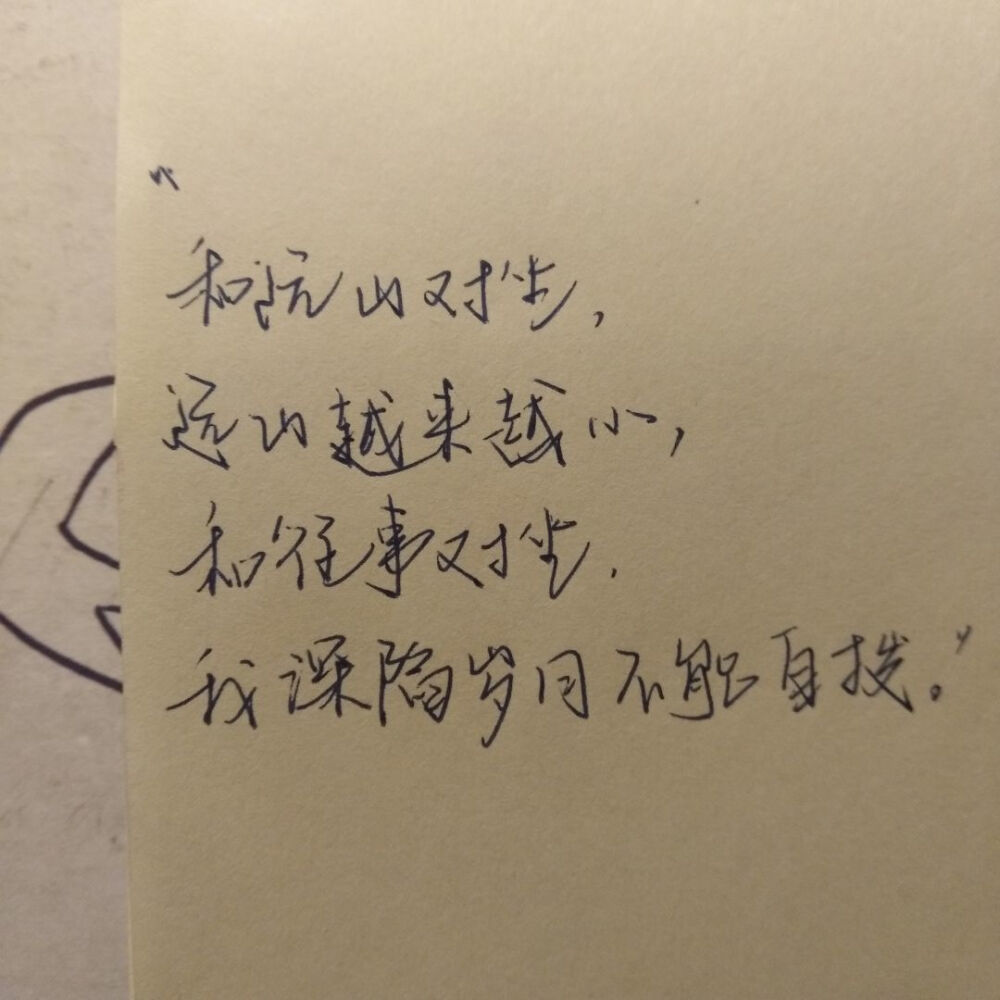 “
和远山对坐，
远山越来越小，
和往事对坐.
我深陷岁月不能自拔。”